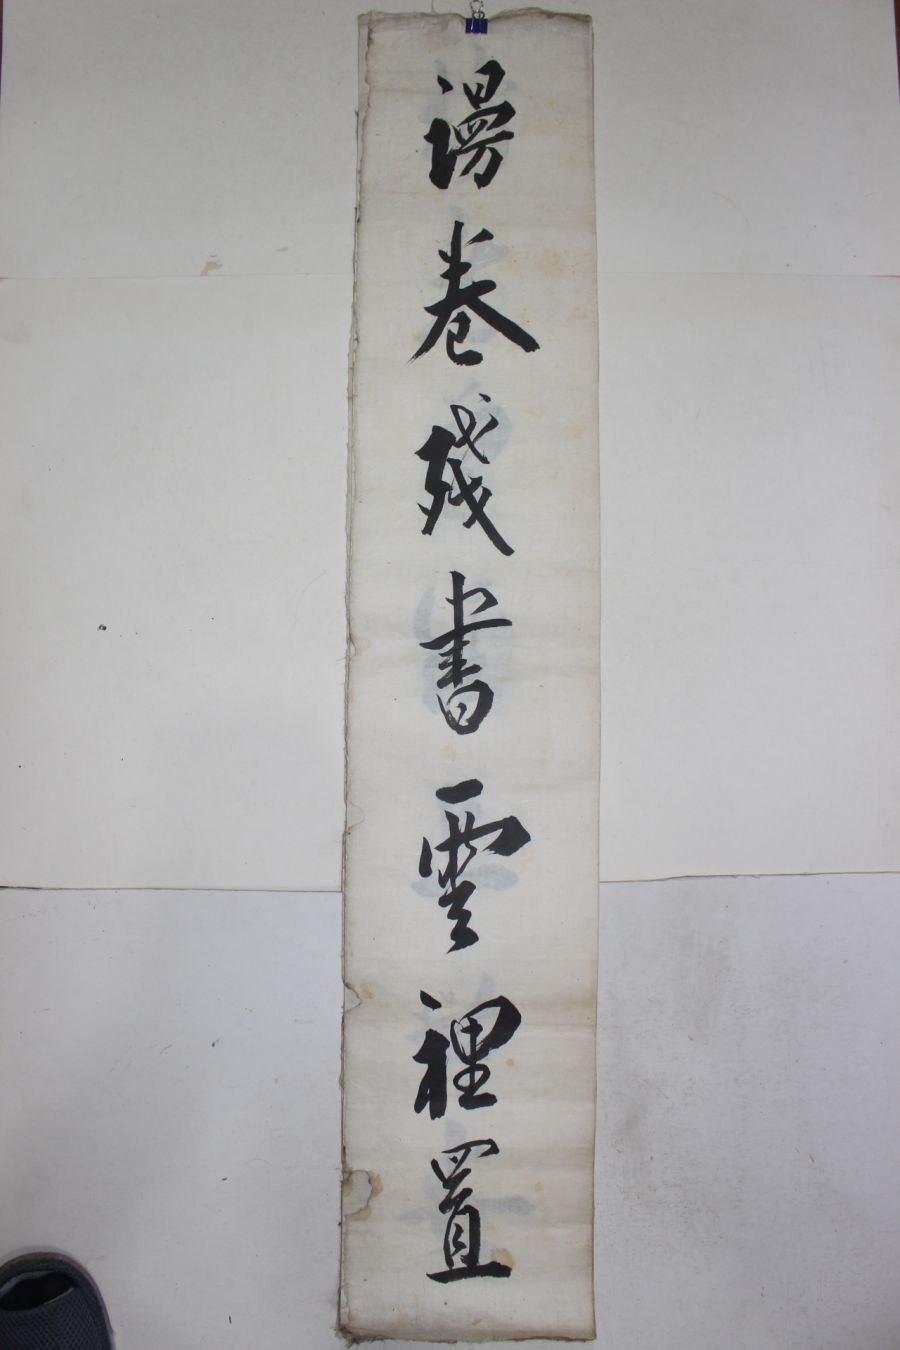 謾卷殘書雲裡置